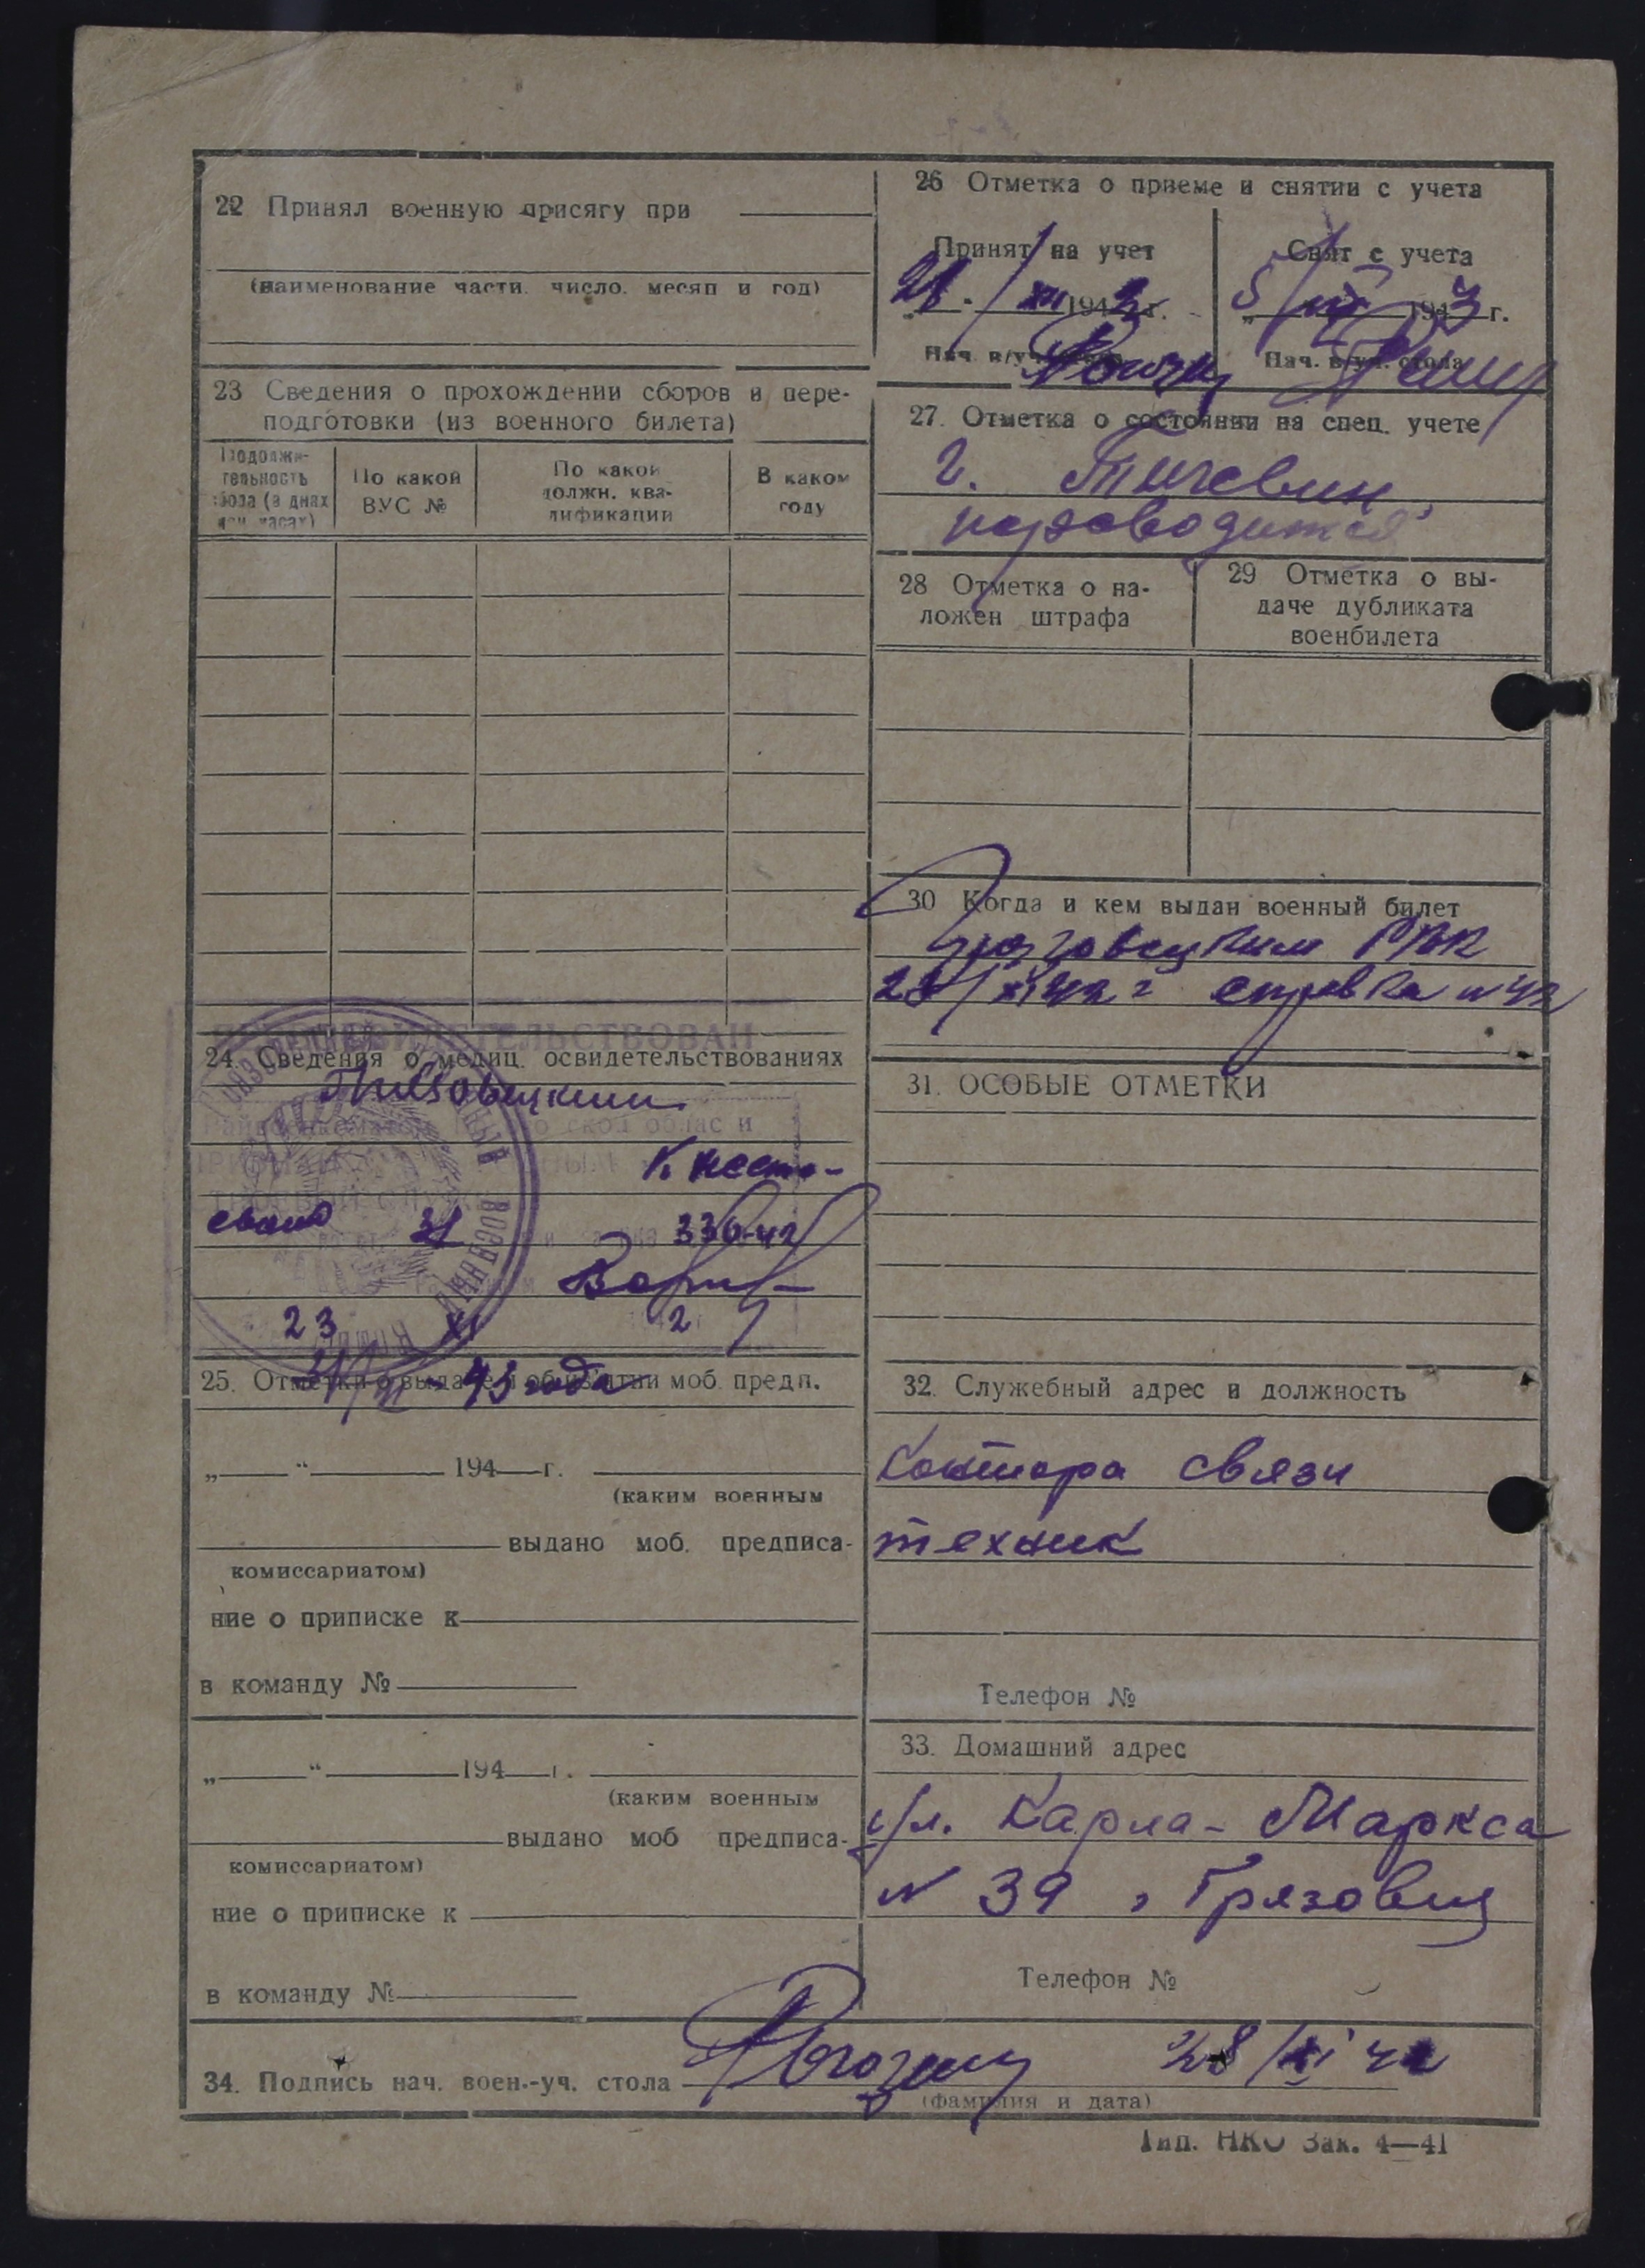 22 Принял военную присягу при
(наименование части, число, месяц и год)
23 Сведения о прохождении сборов и пере-
подготовки (из военного билета)
Продолжи-
тельность
сбора (в днях
или часах)
По какой
ВУС №
По какой
должн. ква-
лификации
В каком
году
24. Сведения о медиц. освидетельствованиях
К несто-
336-42
23 XI 2
43 года
25. Отметки о выдаче и об изъятии моб. предп.
„ “ 194 г.
(каким военным
выдано моб. предписа-
комиссариатом)
ние о приписке к
в команду №
„ “ 194 г.
(каким военным
выдано моб предписа-
комиссариатом)
ние о приписке к
в команду №
26 Отметка о приеме и снятии с учета
Принят на учет
XII 1942 г.
Нач. в/уч. стола
Снят с учета
5/ 1943 г.
Нач. в/уч. стола
27. Отметка о состоянии на спец. учете
28 Отметка о на-
ложен штрафа
29 Отметка о вы-
даче дубликата
военбилета
30 Когда и кем выдан военный билет
Грязовецким РВК
XI 42 г справка № 42
31. ОСОБЫЕ ОТМЕТКИ
32. Служебный адрес и должность
Контора связи
техник
Телефон №
33. Домашний адрес
ул. Карла-Маркса
№ 39, Грязовец
Телефон №
34. Подпись нач. воен.-уч. стола 28/XI 42
(фамилия и дата)
Тип. НКО Зак. 4—41